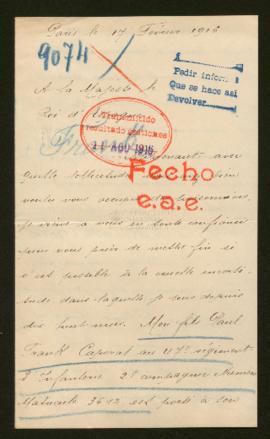 Paris le 17 Février 1916
9074
Pedir inform
Que se hace así
Devolver
A la Majesté le
Roi d'
Transmitido
resultado gestiones
11 AGO 1916
avec
quelle sollicitude
Fecho
e.a.e.
voulu vous occuper
je viens à vous en toute confiance
pour vous prier de mettre fin si
c'est possible à la cruelle incerti-
tude dans laquelle je suis depuis
dix huit mois. Mon fils Paul
Frank Caporal au 117e régiment
d'Infanterie 2e compagnie Numéro
Matricule 3612 est porté à son